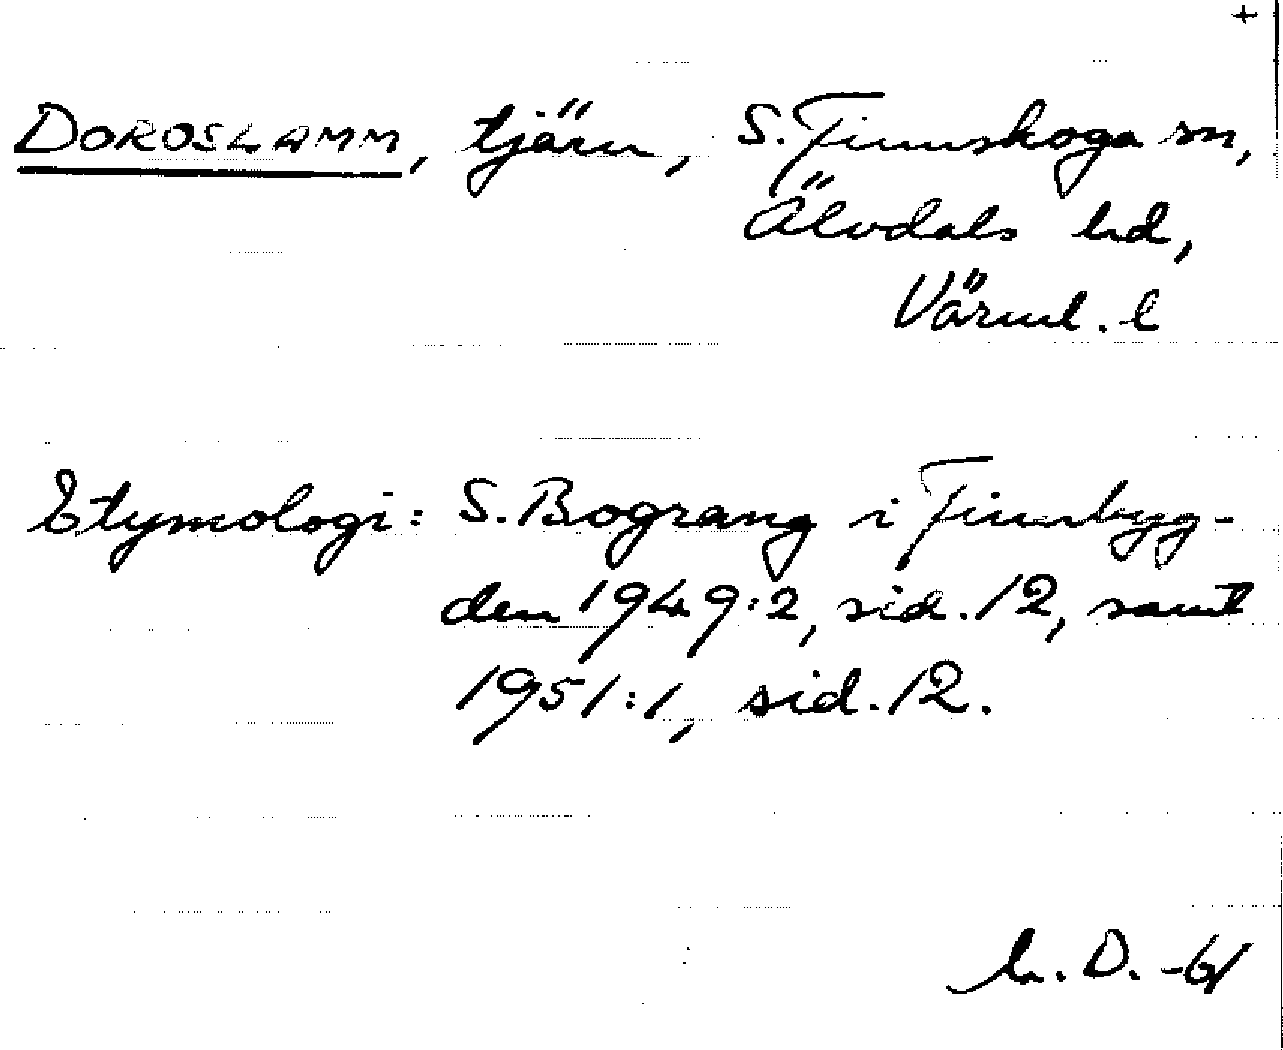 +
DOROSLAMM, tjärn, S. Finnskoga sn,
Älvdals hd,
Värml. l
Etymologi: S. Bograng i Finnbyg-
den 1949:2, sid. 12, samt
1951:1, sid. 12.
D. -61